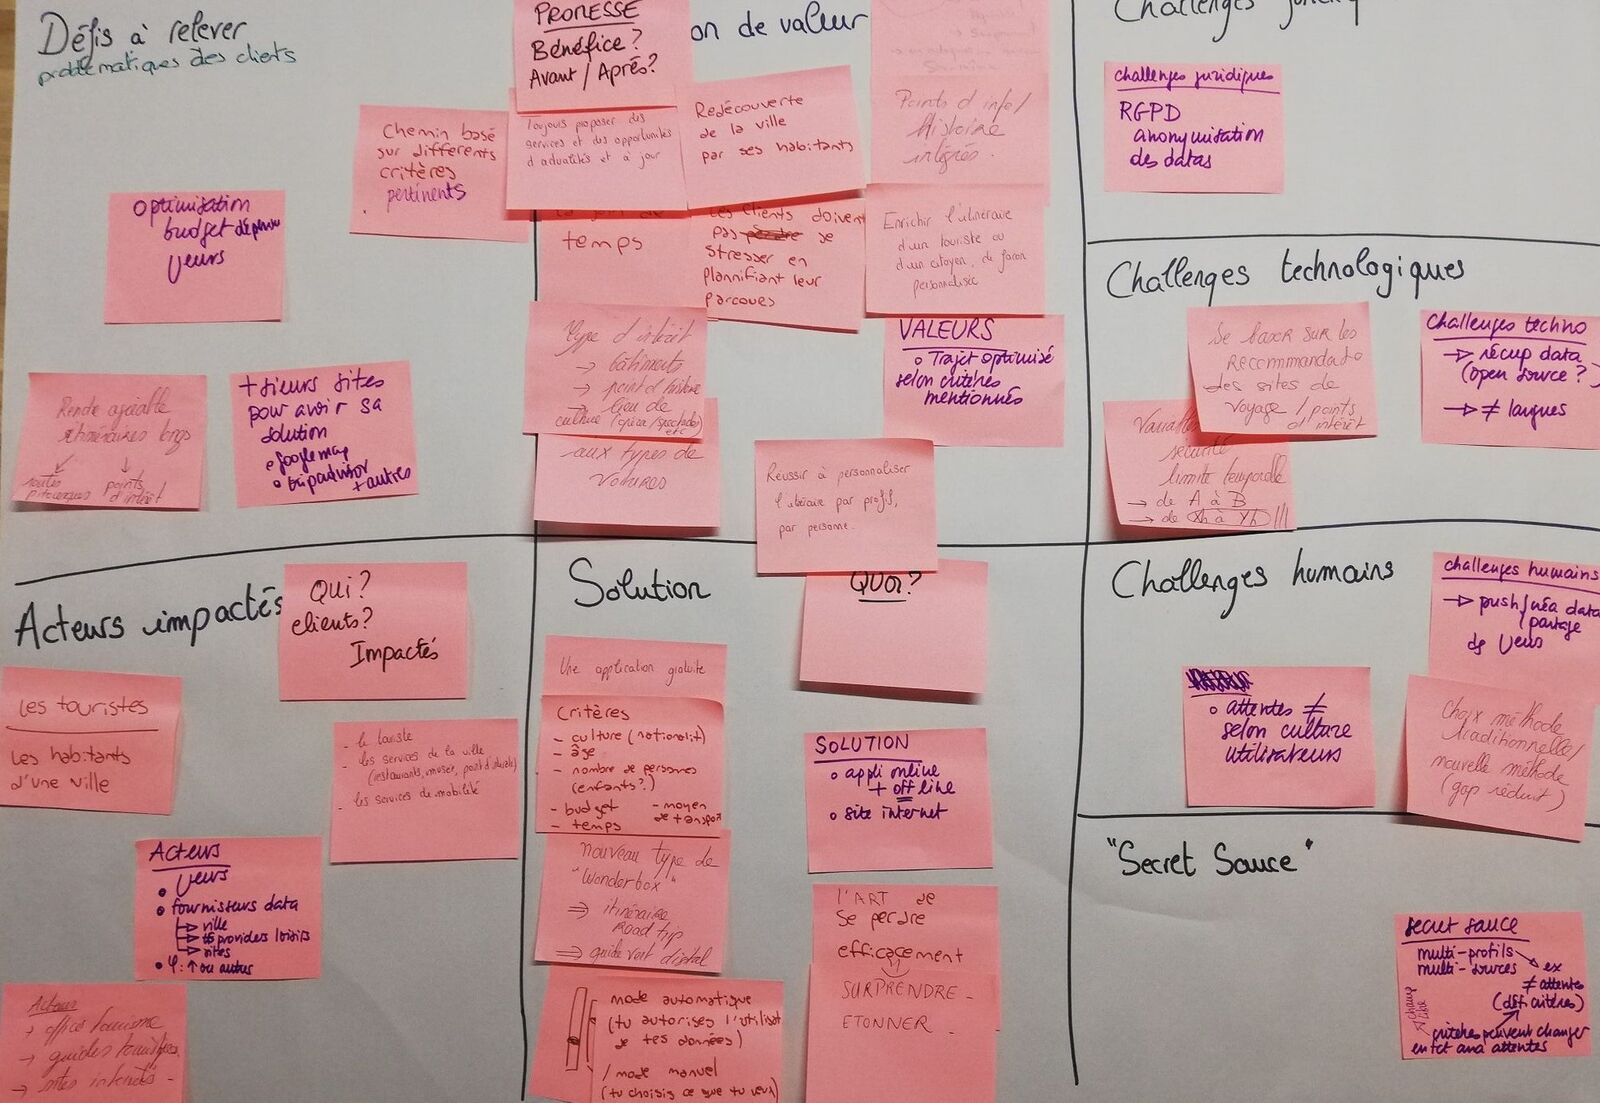 Défis à relever
problématiques des clients
Chemin basé
sur differents
critères
pertinents
Optimisation
budget
Veurs
Rende agréable
itinéraires longs
routes
points
d'intérêt
+sieurs sites
pour avoir sa
solution
googlemap
tripadvisor
+ autres
on de valeur
PROMESSE
Bénéfice?
Avant / Après?
Toujours proposer des
services et des opportunités
d'actualités et à jour
Redécouverte
de la ville
par ses habitants
Points d'info/
Histoire
intégrés.
temps
Les clients doivent
pas se
stresser en
plannifiant leur
parcours
Enrichir l'itinéraire
d'un touriste ou
d'un citoyen, de façon
personnalisée
Type d'intérêt
→ bâtiments
→ point d'histoire
→ lieu de
culture (opéra/spectacle)
etc
aux types de
voitures
VALEURS
Trajet optimisé
selon critères
mentionnés
Réussir à personnaliser
l'itinéraire par profil,
par personne.
Challenges
challenges juridiques
RGPD
anonymisation
des datas
Challenges technologiques
Se baser sur les
recommandato
des sites de
voyage / points
d'intérêt
Challenges techno
→ récup data
(open source?)
→ ≠ langues
Variables
sécurité
limite temporelle
→ de A à B
→ de Xh à Yh !!!
Acteurs impactés
Qui?
clients?
Impactés
Les touristes
Les habitants
d'une ville
- le touriste
- les services de la ville
(restaurants, musées, point d'intérêt)
- les services de mobilité
Acteurs
Veurs
fournisseurs data
→ ville
→ providers loisirs
→ sites
ou autres
Acteurs
→ office tourisme
→ guides touristiques
→ sites internets -
Solution
QUOI?
Une application gratuite
Critères
- culture (nationalit)
- âge
- nombre de personnes
(enfants?)
- budget - moyen
de transport
- temps
SOLUTION
appli online
+ off line
site internet
nouveau type de
"Wonderbox"
⇒ itinéraire
Road trip
⇒ guide vert digital
l'ART de
se perdre
efficacement
SURPRENDRE -
ETONNER -
mode automatique
(tu autorises l'utilisat
de tes données)
/ mode manuel
(tu choisis ce que tu veux)
Challenges humains
challenges humains
→ push/
data
/partage
de Veurs
attentes ≠
selon culture
utilisateurs
Choix méthode
traditionnelle/
nouvelle méthode
(gap réduit)
"Secret Sauce"
secret sauce
multi-profils
multi-sources ex
≠ attentes
(dif critères)
champ
libre
critères peuvent changer
en fct attentes